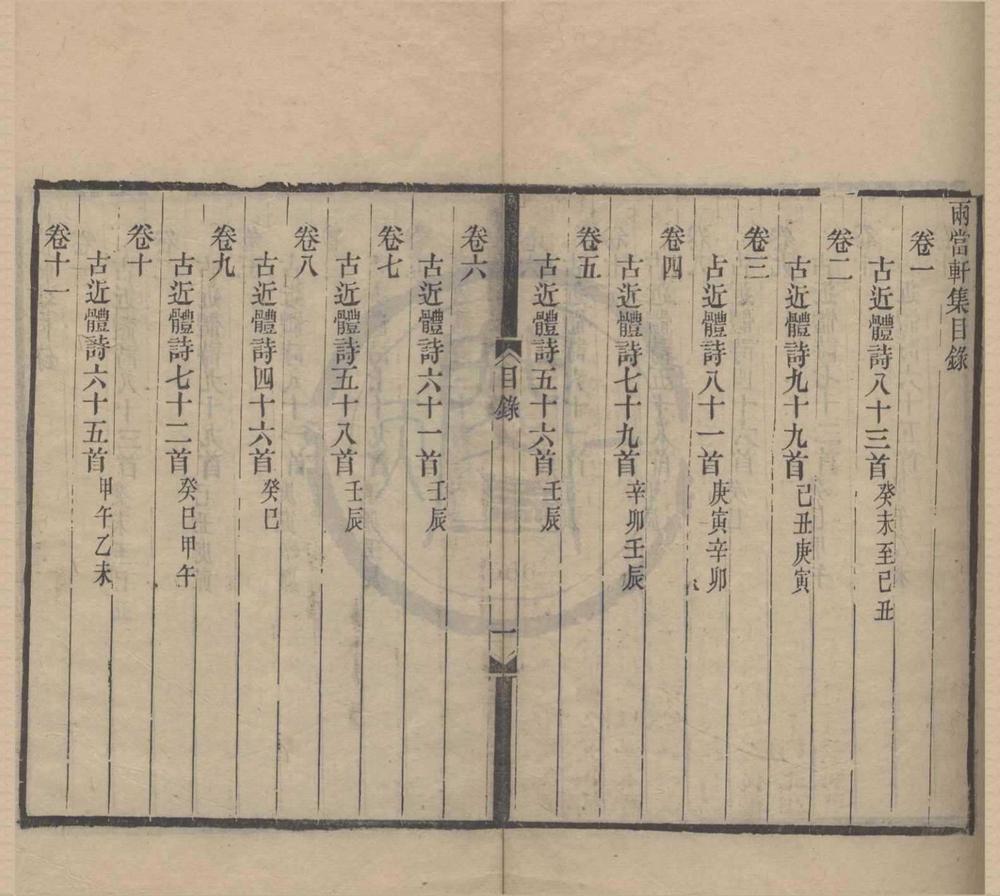 兩當軒集目錄
卷一
古近體詩八十三首癸未至己丑
卷二
古近體詩九十九首己丑庚寅
卷三
古近體詩八十一首庚寅辛卯
卷四
古近體詩七十九首辛卯壬辰
卷五
古近體詩五十六首壬辰
目錄
一
卷六
古近體詩六十一首壬辰
卷七
古近體詩五十八首壬辰
卷八
古近體詩四十六首癸巳
卷九
古近體詩七十二首癸巳甲午
卷十
古近體詩六十五首甲午乙未
卷十一